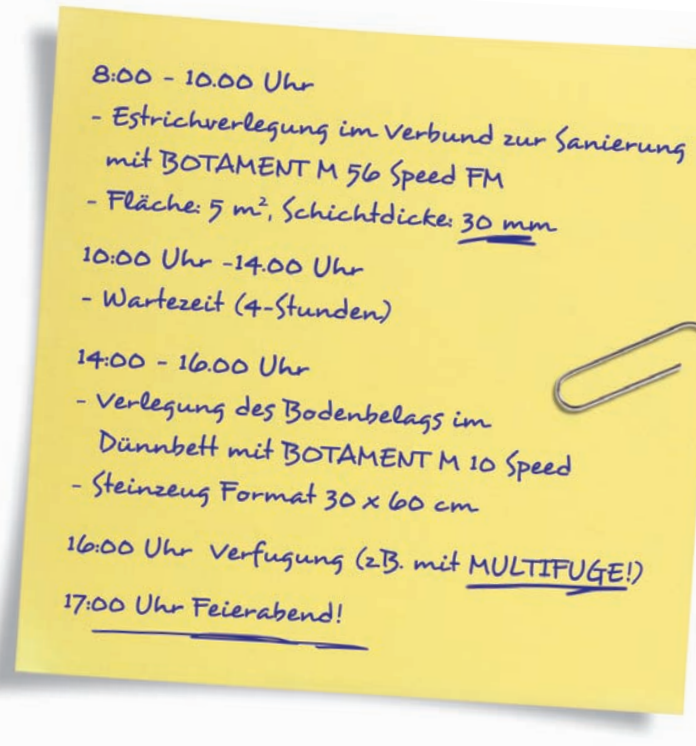 8:00 - 10.00 Uhr
- Estrichverlegung im Verbund zur Sanierung
mit BOTAMENT M 56 Speed FM
- Fläche: 5 m², Schichtdicke: 30 mm
10:00 Uhr - 14.00 Uhr
- Wartezeit (4-Stunden)
14:00 - 16.00 Uhr
- Verlegung des Bodenbelags im
Dünnbett mit BOTAMENT M 10 Speed
- Steinzeug Format 30 x 60 cm
16:00 Uhr Verfugung (z.B. mit MULTIFUGE!)
17:00 Uhr Feierabend!